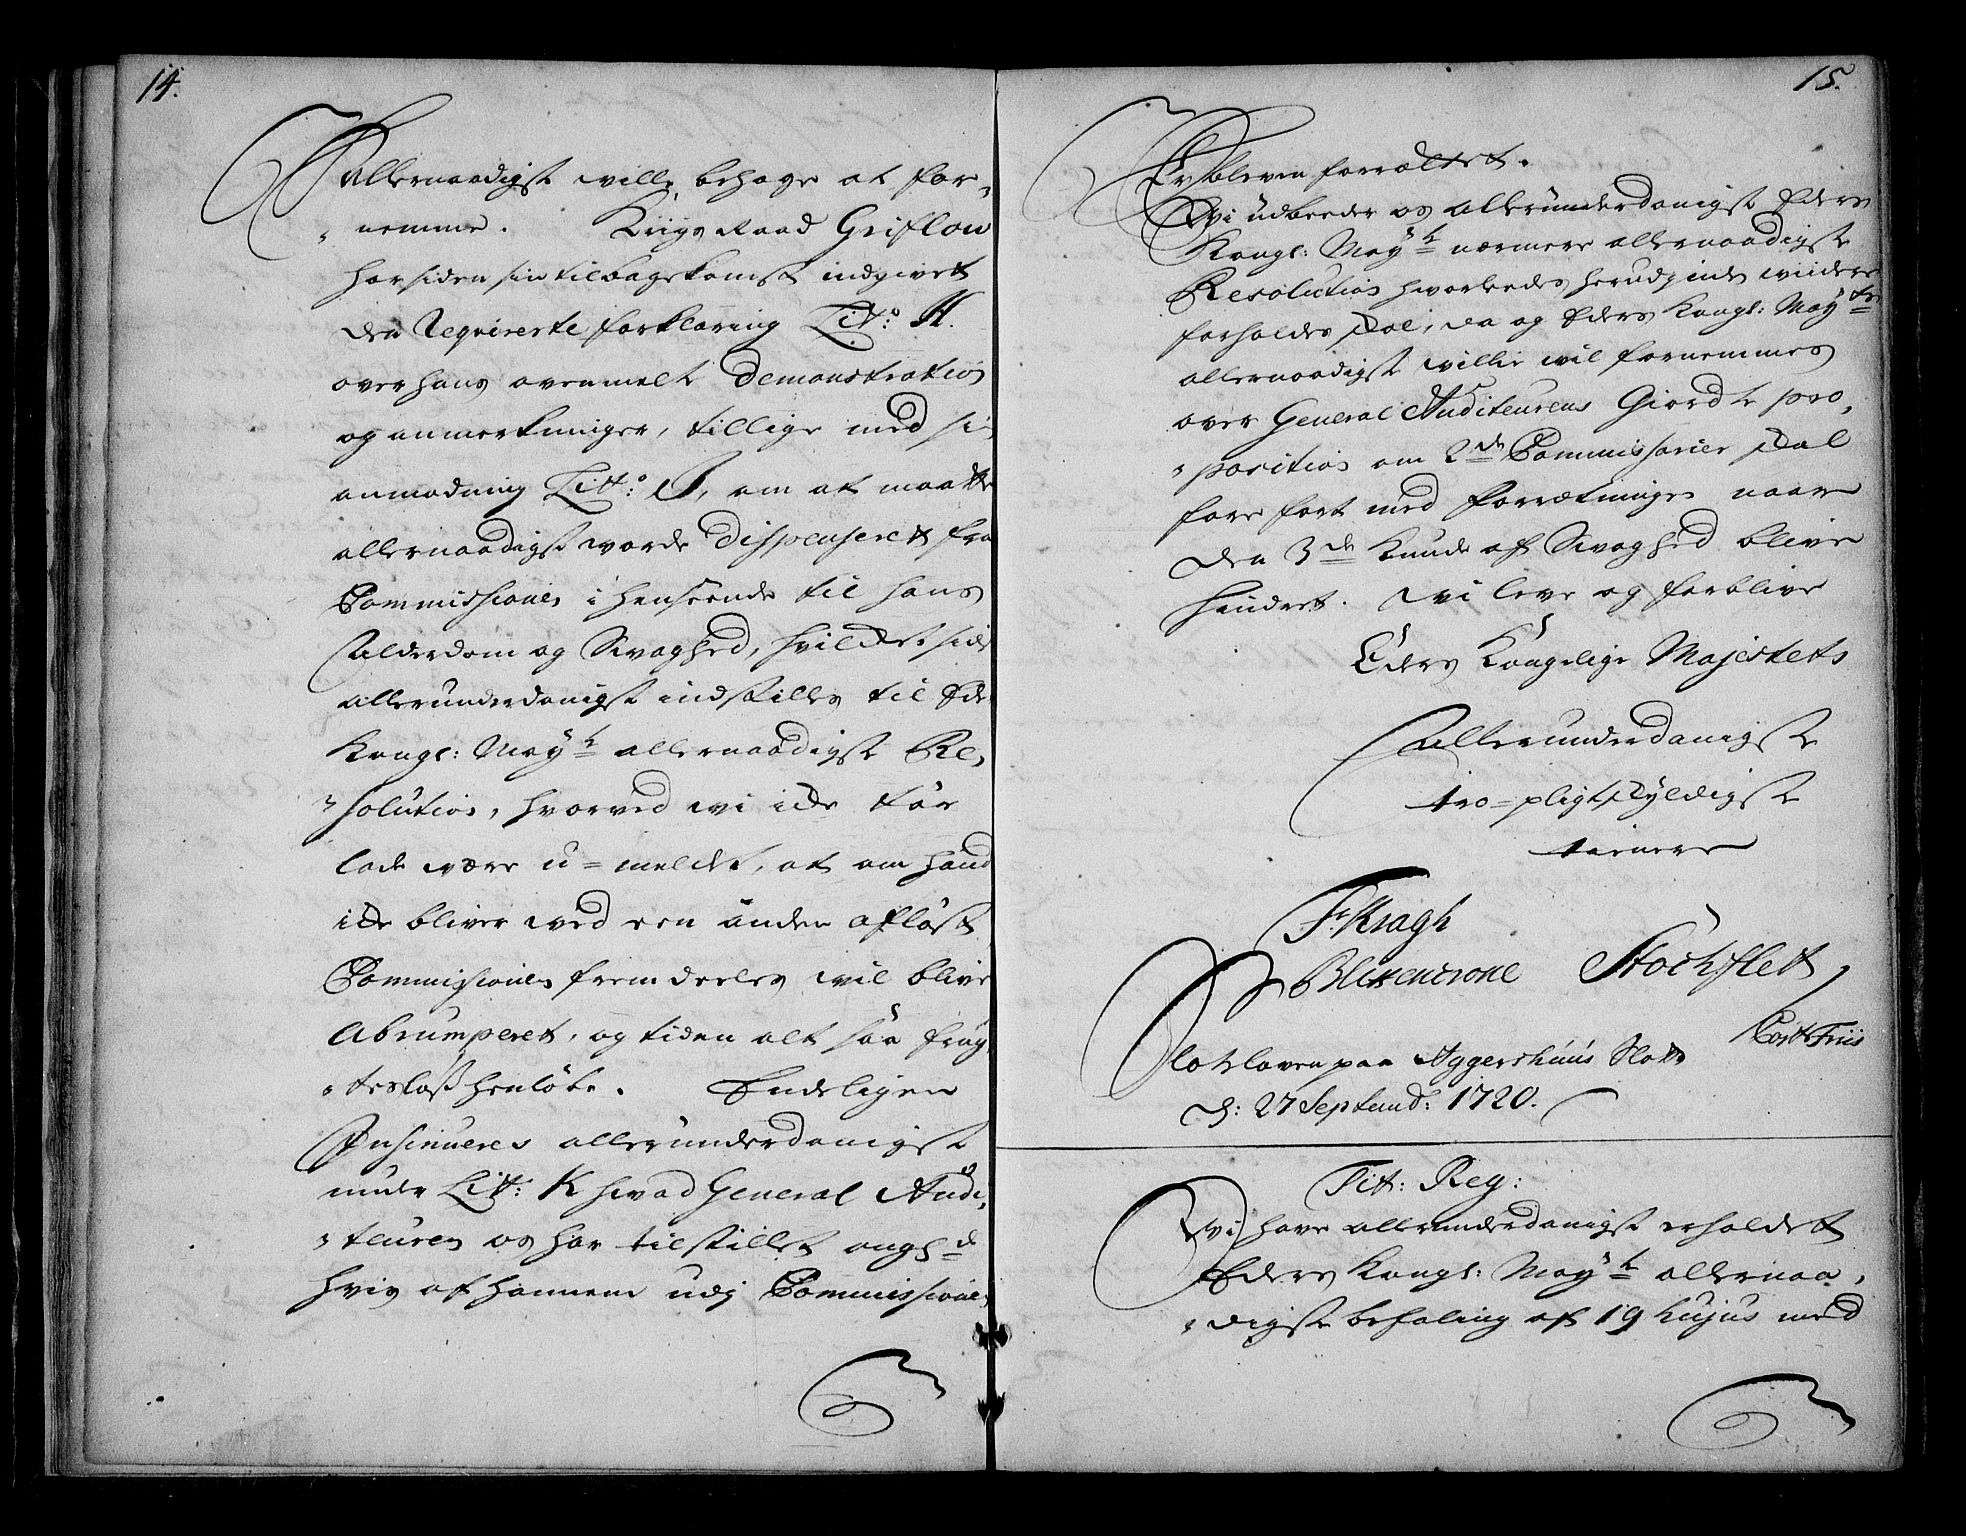 14.
Allernaadigst ville behage at for-
nemme. Kriigs Raad Griflow
har siden sin tilbagekomst indgivet
den Requirerte forklaring Litt: H.
over hans ovenmelte Demonstration
og anmerkninger, tillige med sin
anmodning Litt: J, om at maatte
allernaadigst worde dispenseret fra
Commissionen i henseende til hans
Alderdom og Svaghed, hvilket sidste
allerunderdanigst indstilles til Eders
Kongl: May:t allernaadigste Re-
solution, hvorved wi icke tør
lade være u-meldet, at om hand
icke bliver ved een anden afløst
Commissionen fremdeeles vil blive
Abrumperet, og tiden alt saa frug-
tesløß henløbe. Endeligen
Insinueres allerunderdanigst
under Litt: K hvad General Audi-
teuren os har tilstillet angd:
hvis af hannem udj Commissionen
15.
Er bleven forrættet.
Wi udbeeder os allerunderdanigst Eders
Kongl: May:ts nærmere allernaadigste
Resolution hvorledes herudjnden widere
forholdes skal, da og Eders Kongl: May:ts
allernaadigst villie vil fornemmes
over General Auditeurens Giorde pro-
position om 2de Commissarier skal
fare fort med forretningen naar
den 3de kunde af Svaghed blive
hindret. Wi leve og forblive
Eders Kongelige Majestets
Allerunderdanigste
troe-pligtskyldigste
tienere
F. Kragh
Blixencrone Stochflet
Cort Friis
Slotzloven paa Aggershuus Slott
d: 27 Septemb: 1720.
Tit: Reg:
Wi have allerunderdanigst erholdet
Eders Kongl: May:ts allernaa-
digste befaling af 19 hujus med